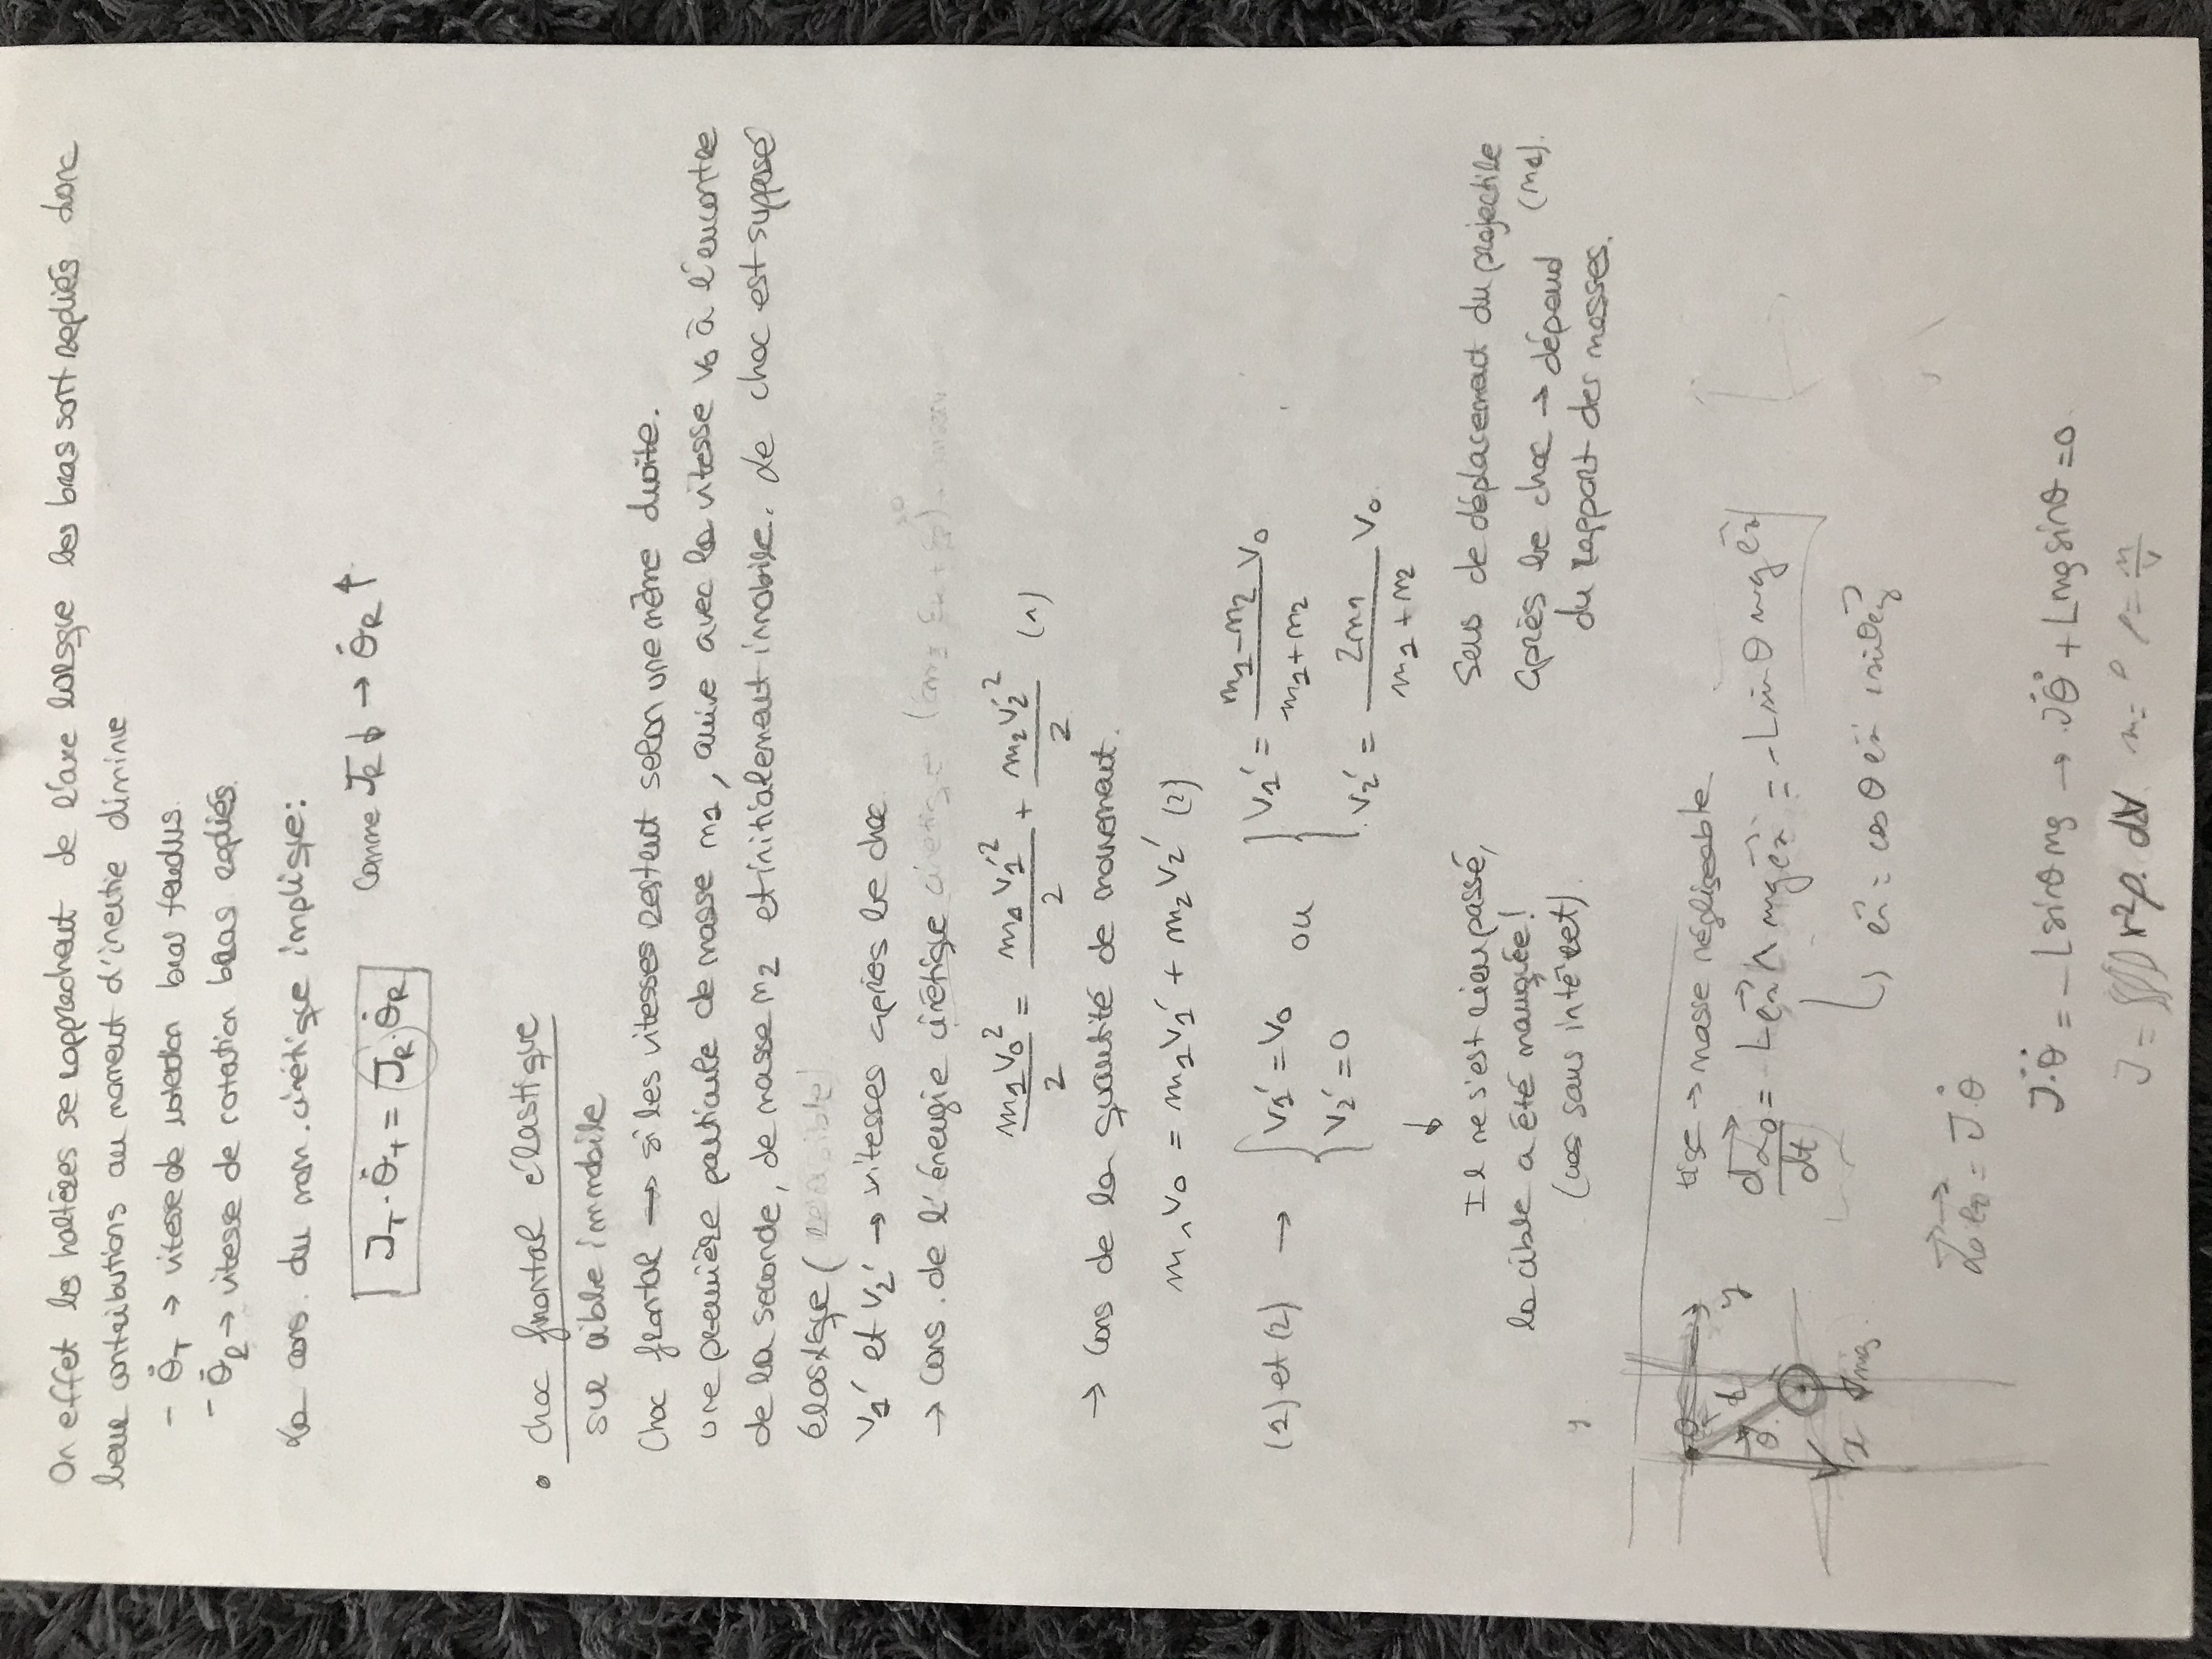 On effet les haltères se rapprochent de l'axe lorsque les bras sont repliés donc
leur contributions au moment d'inertie diminue
- θ̇_T → vitesse de rotation bras tendus.
- θ̇_R → vitesse de rotation bras repliés.
La cons. du mom. cinétique implique:
J_T · θ̇_T = J_R · θ̇_R
Comme J_R ↓ → θ̇_R ↑
• Choc frontal élastique
sur cible immobile
Choc frontal → si les vitesses restent selon une même droite.
une première particule de masse m1, arrive avec la vitesse v0 à l'encontre
de la seconde, de masse m2 et initialement immobile. Le choc est supposé
élastique (
v1' et v2' → vitesses après le choc
→ Cons. de l'énergie cinétique cinétique
m1v0²/2 = m1v1'²/2 + m2v2'²/2 (1)
→ Cons de la quantité de mouvement.
m1v0 = m1v1' + m2v2' (2)
(1) et (2) → { v1' = v0 ou { v1' = (m1-m2)/(m1+m2) v0
v2' = 0 v2' = 2m1/(m1+m2) v0
↓
Il ne s'est rien passé,
la cible a été manquée!
(cas sans intérêt).
Sens de déplacement du projectile
après le choc → dépend (m1).
du rapport des masses.
y
O
y
L
θ
x
mg
tige → masse négligeable
dL⃗o/dt = L e⃗r ∧ mg e⃗x = -L sinθ mg e⃗z
↳ e⃗r = cosθ e⃗x + sinθ e⃗y
L⃗o e⃗z = J·θ̇
J·θ̈ = -L sinθ mg → Jθ̈ + Lmg sinθ = 0
J = ∭ r²ρ. dV m = ρ ρ = m/V